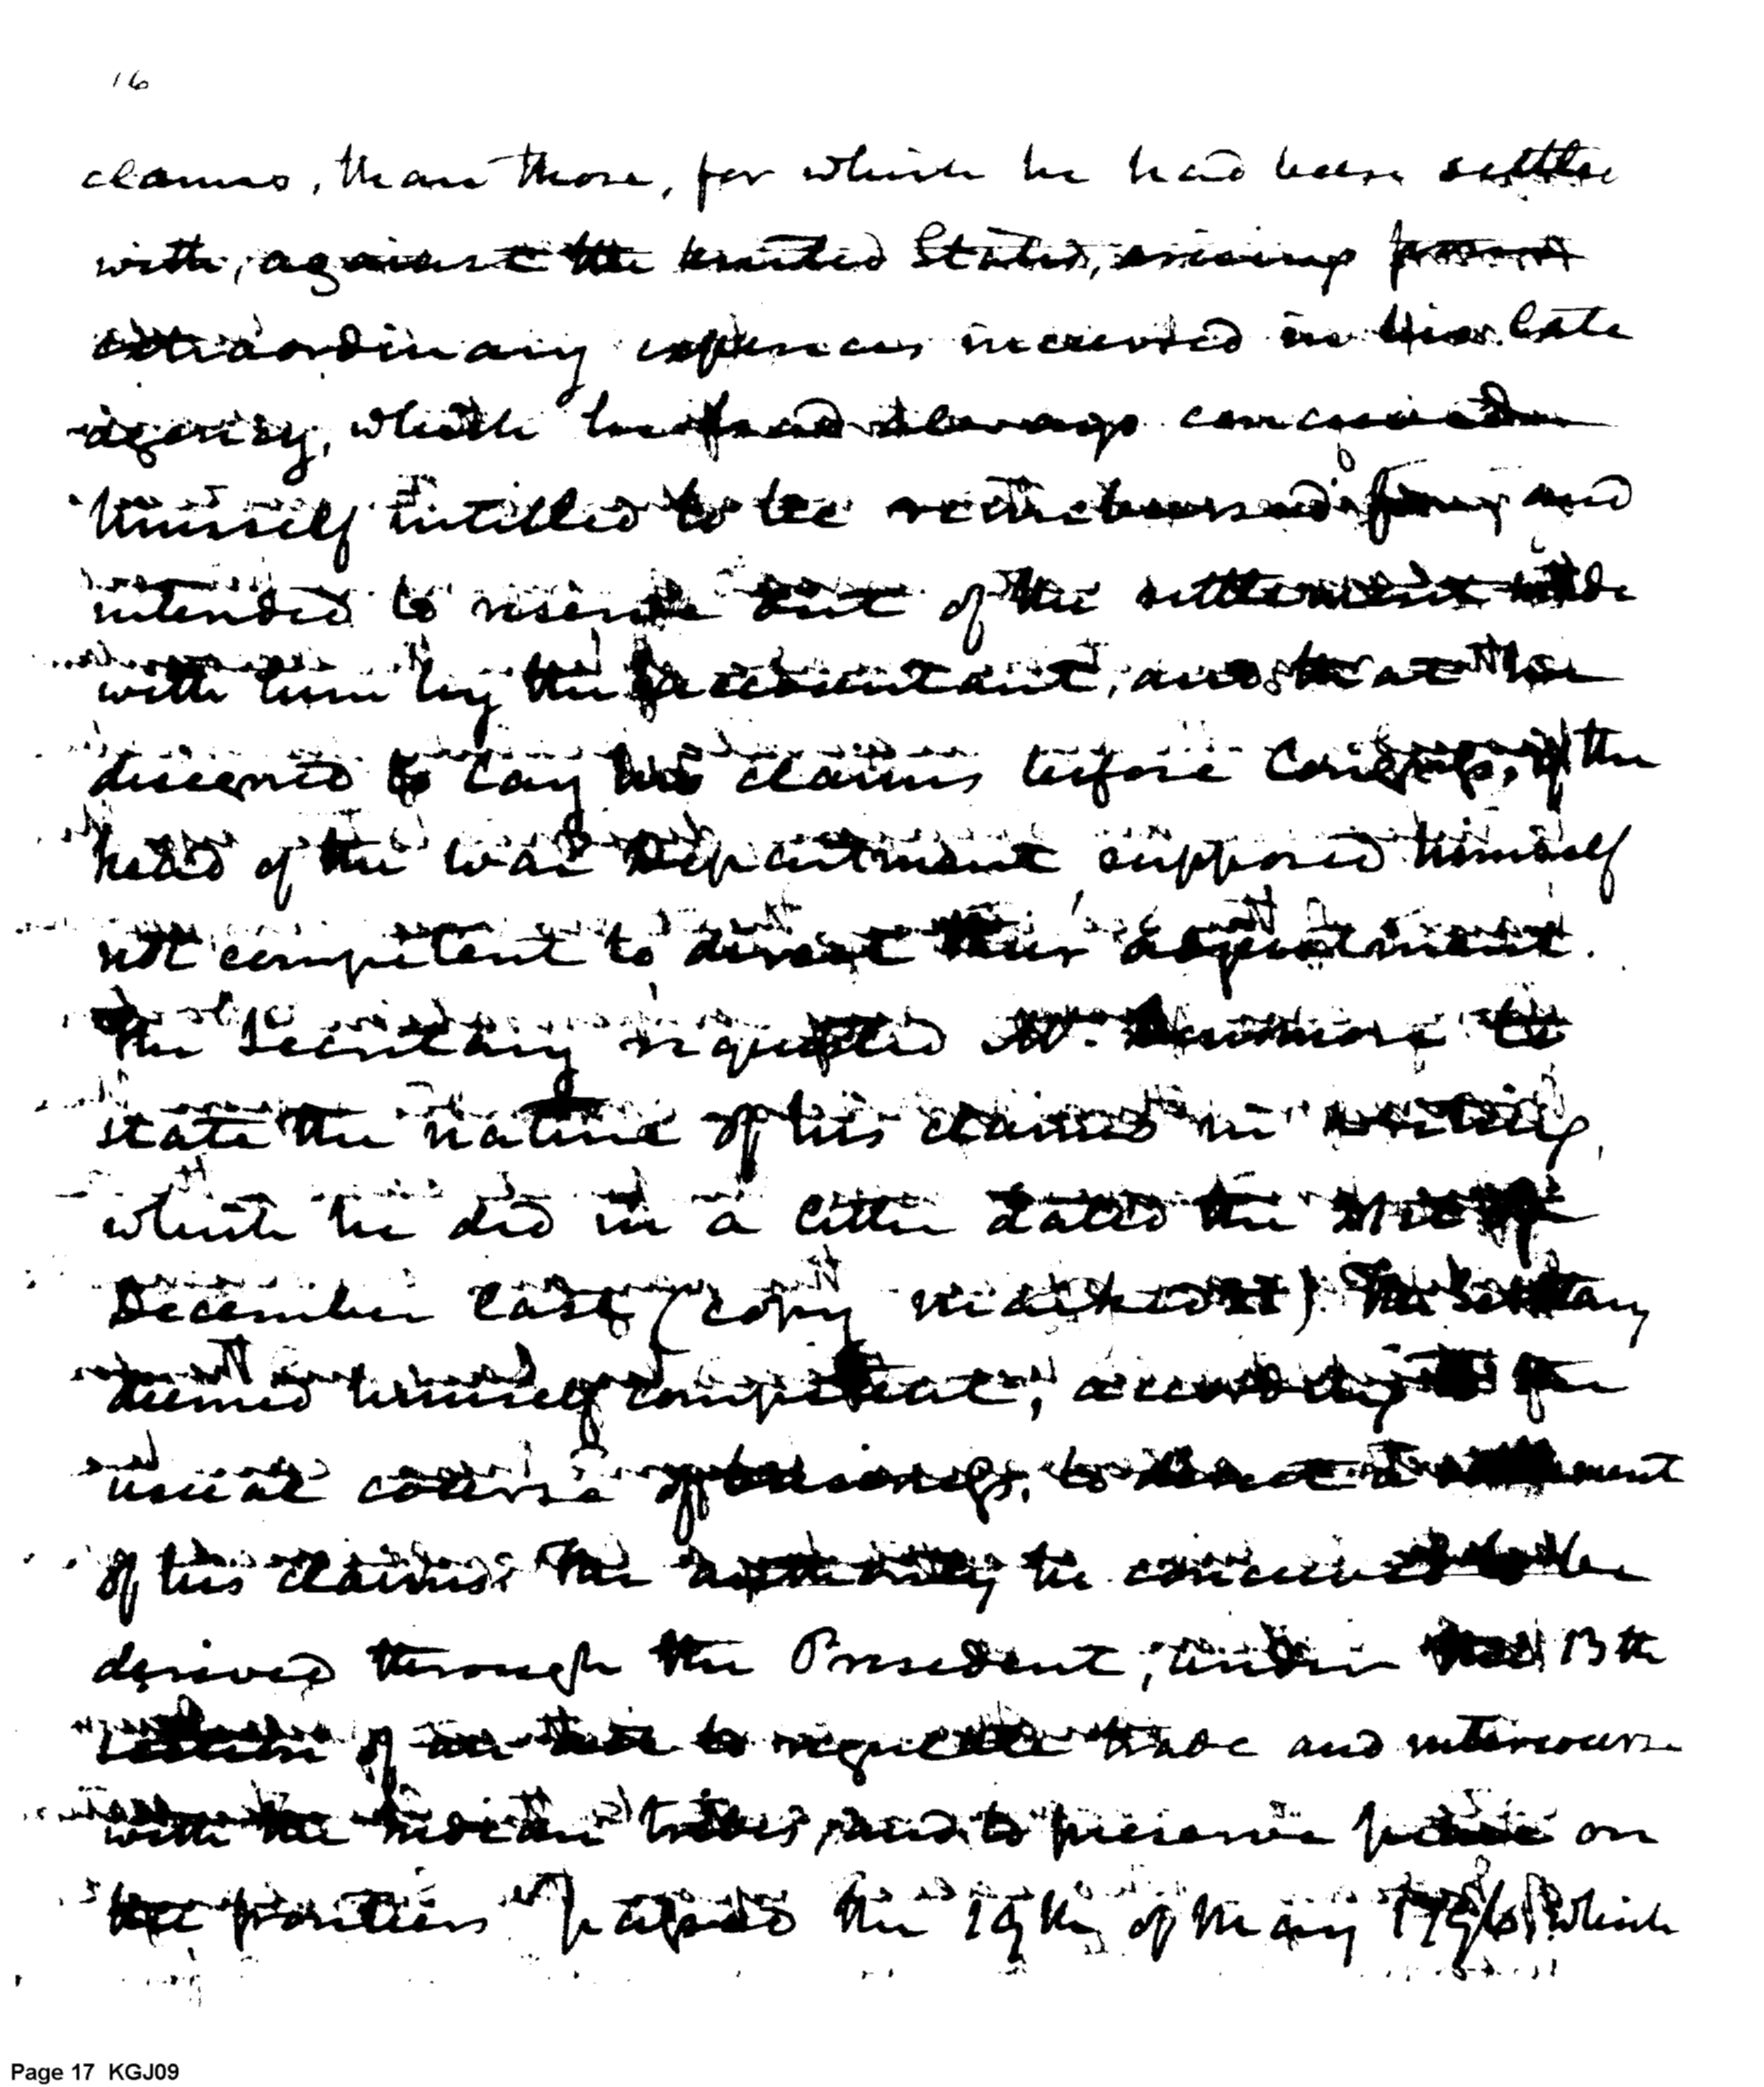 16
claims, than those, for which he had been settled
with, against the United States, arising from
extraordinary expences incurred in his late
agency, which he had always conceived
himself intitled to be reimbursed for, and
intended to reserve out of the settlement made
with him by the accountant, and that he
designed to lay his claims before Congress, if the
head of the War Department supposed himself
not competent to direct their adjustment.
The Secretary requested Mr. to
state the nature of his claims in writing,
which he did in a letter dated the of
December last (copy marked ) The Secretary
deemed himself competent, according to the
usual course of business, to direct a settlement
of his claims. The authority he conceived to be
derived through the President, under the 13th
section of an act to regulate trade and intercourse
with the Indian tribes, and to preserve peace on
the frontiers passed the 19th of May 1796, which
Page 17 KGJ09